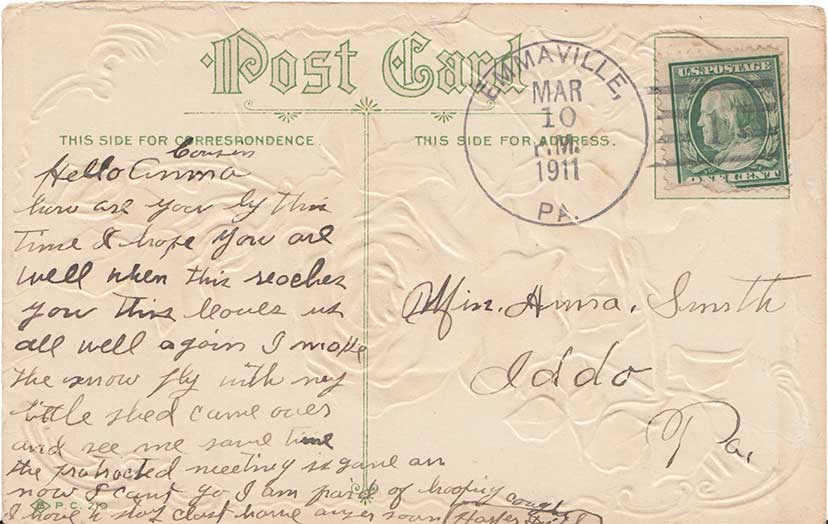 Post Card
THIS SIDE FOR CORRESPONDENCE.
THIS SIDE FOR ADDRESS.
EMMAVILLE,
MAR
10
P.M.
1911
PA.
U.S. POSTAGE
ONE CENT
Cousin
Hello Anna
how are you by this
time I hope you are
well when this reaches
you this leaves us
all well again I make
the snow fly with my
little sled came over
and see me some time
the protracted meeting is gone on
now I cant go I am fraid of hooping cough
I have to stay close home answer soon
P.C. 210
Miss. Anna. Smith
Iddo
Pa.